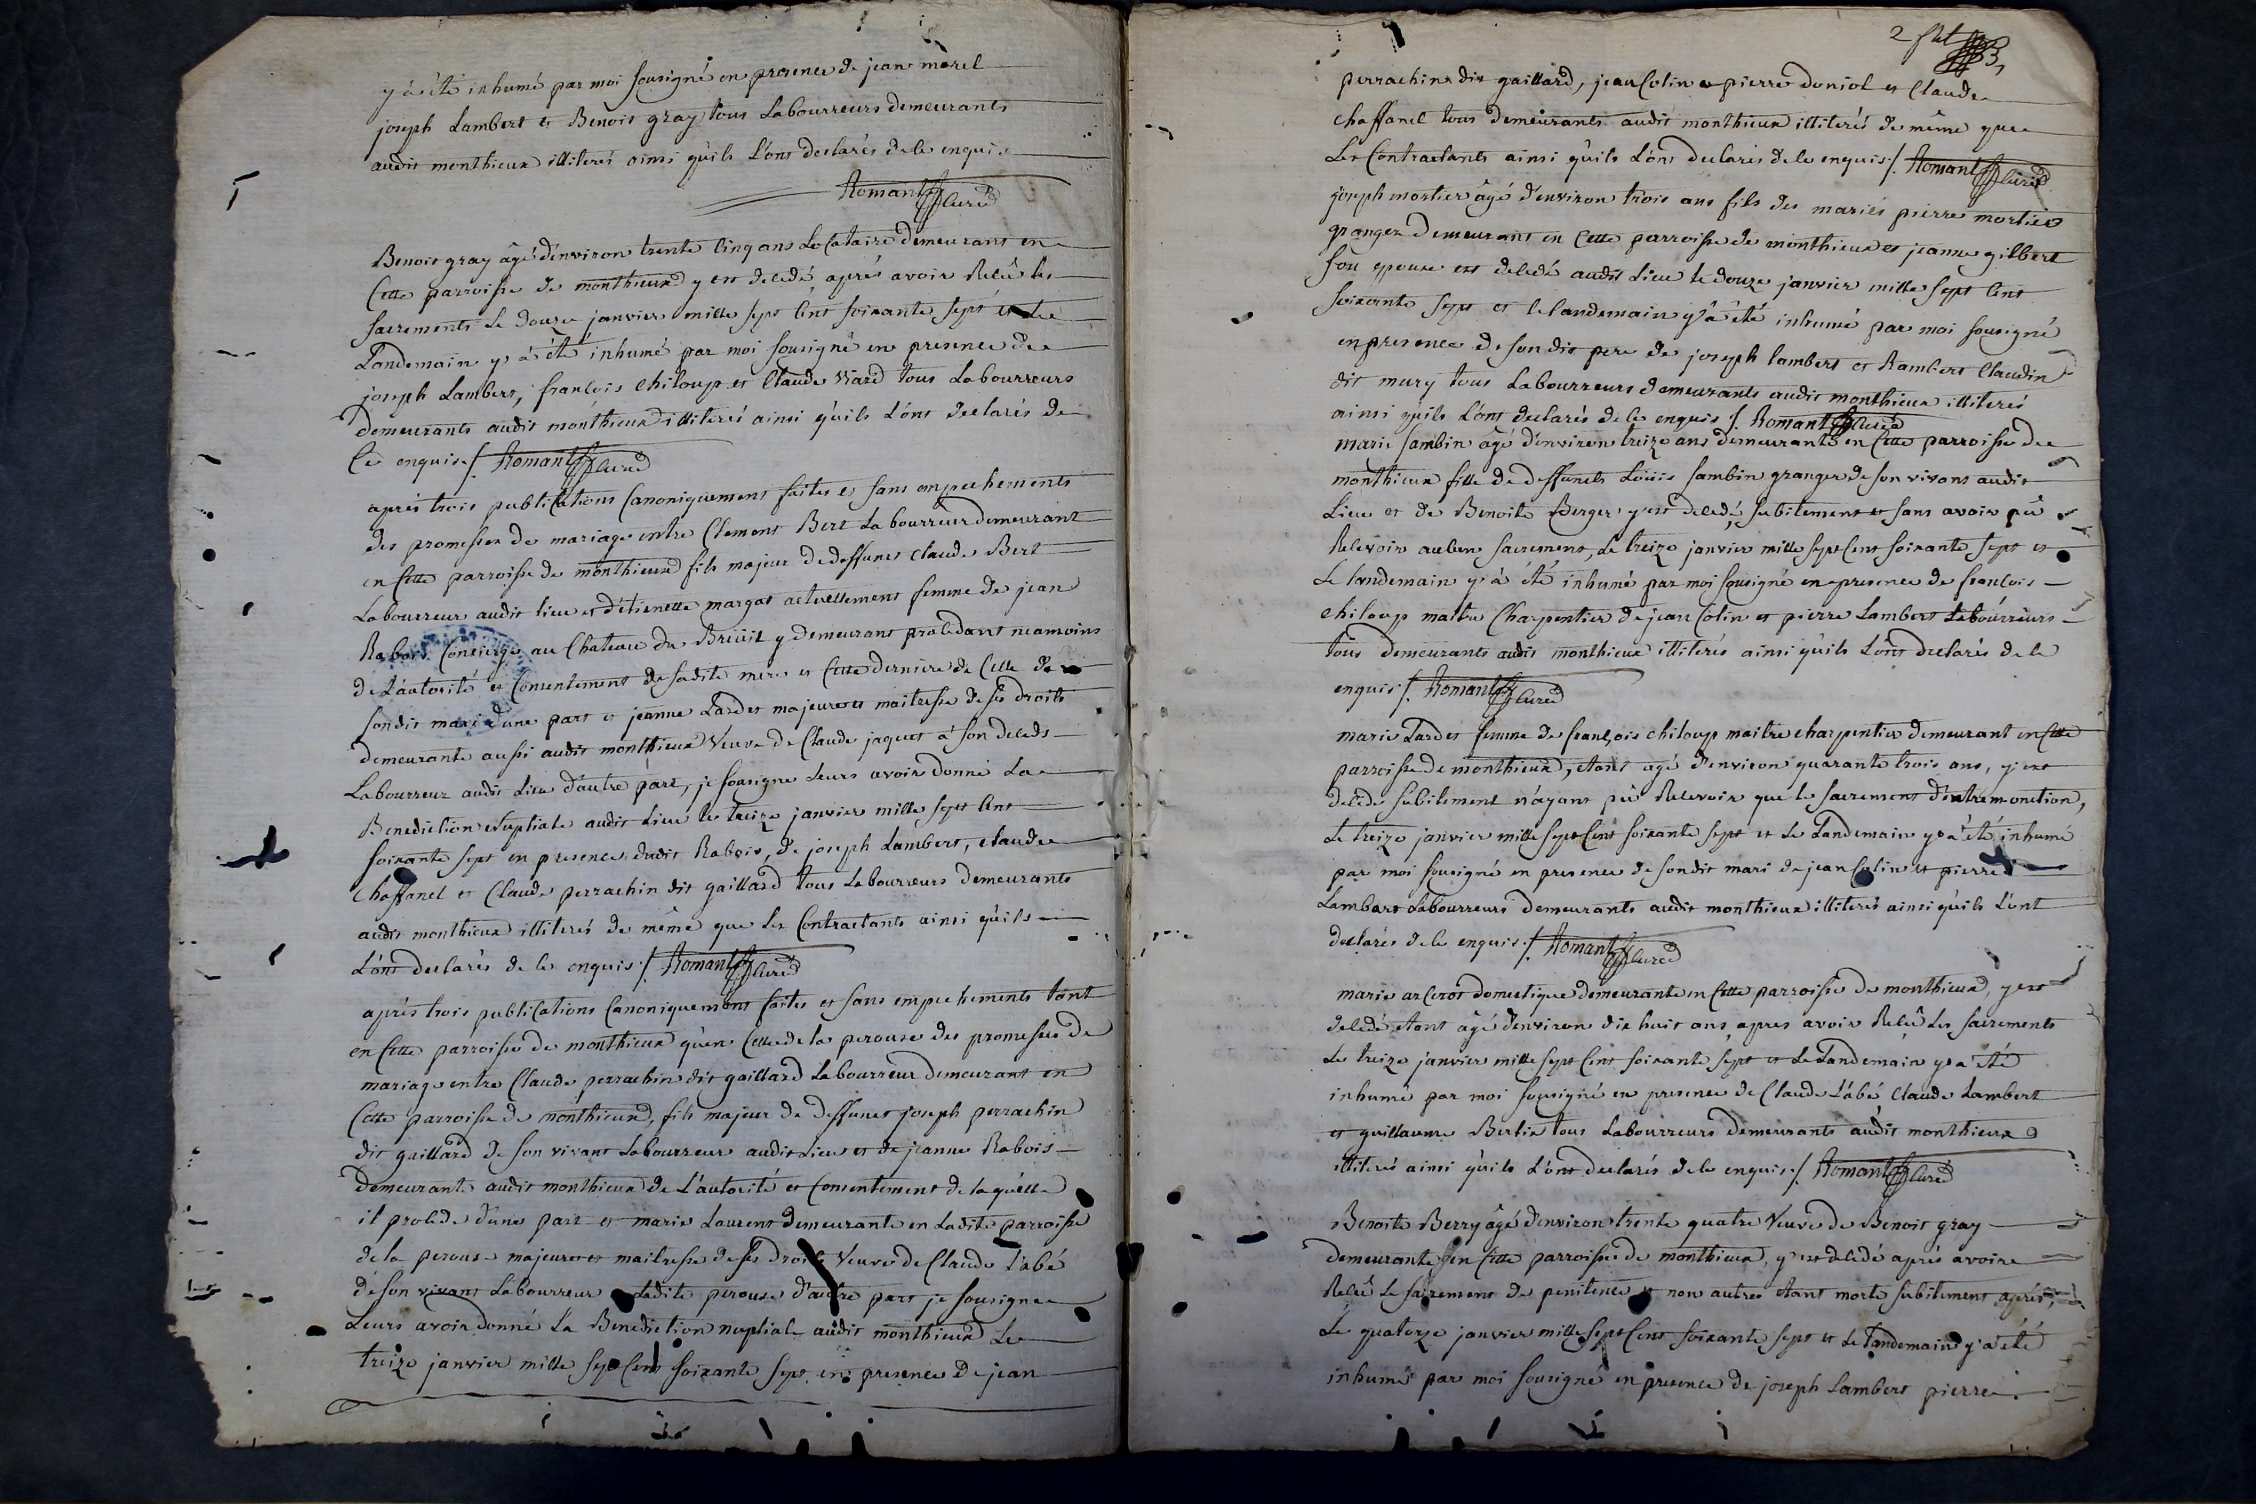 y à été inhumé par moi sousigné en presence de jean morel
joseph Lambert et Benoit gray tous Labourreurs demeurants
audit monthieux illiterés ainsi qu'ils L'ont declarés de ce enquis
Romant Curé
Benoit gray âgé d'environ trente Cinq ans Locataire demeurant en
Cette parroisse de monthieux y est decedé aprés avoir Reçû les
sacrements Le douze janvier mille sept Cent soixante sept et Le
Landemain y à été inhumé par moi sousigné en presence de
joseph Lambert, françois chiloup et Claude viard tous Labourreurs
demeurants audit monthieux illiterés ainsi qu'ils L'ont declarés de
Ce enquis ./. Romant Curé
aprés trois publications Canoniquement faites et sans empechements
des promesses de mariage entre Clement Bert Labourreur demeurant
en Cette parroisse de monthieux fils majeur de deffunct Claude Bert
Laboureur audit lieu et d'étienette margat actuellement femme de jean
Rabois Concierge au Chateau du Breüil y demeurant procedant neamoins
de L'autorité et Consentement de sadite mere et Cette derniere de Celle de
sondit mari d'une part et jeanne Lardet majeure et maitresse de ses droits
demeurante aussi audit monthieux Veuve de Claude jaquet à son deceds
Labourreur audit Lieu d'autre part, je sousigne Leurs avoir donné La
Benediction Nuptiale audit Lieu le treize janvier mille sept Cent
soixante sept en presence dudit Rabois, de joseph Lambert, claude
Chaffanel et Claude perrachin dit gaillard tous Labourreurs demeurants
audit monthieux illiterés de même que Les Contractants ainsi qu'ils
L'ont declarés de Ce enquis ./. Romant Curé
aprés trois publications Canoniquement faites et sans empechements tant
en Cette parroisse de monthieux qu'en Celle de la perouse des promesses de
mariage entre Claude perrachin dit gaillard Labourreur demeurant en
Cette parroisse de monthieux, fils majeur de deffunct joseph perrachin
dit gaillard de son vivant Labourreur audit Lieu et de jeanne Rabois
demeurante audit monthieux de L'autorité et Consentement de laquelle
il procede d'une part et marie Laurent demeurante en Ladite parroisse
de la perouse majeure et maitresse de ses droits Veuve de Claude L'abé
de son vivant Labourreur Ladite perouse d'autre part je sousigne
Leurs avoir donné La Benediction nuptiale audit monthieux Le
treize janvier mille sept Cent soixante sept en presence de jean
2
perrachin dit gaillard, jean Colin et pierre doniol et Claude
chaffanel tous demeurants audit monthieux illiterés de même que
Les Contractants ainsi qu'ils L'ont declarés de Ce enquis ./. Romant Curé
joseph mortier âgé d'environ trois ans fils des mariés pierre mortier
granger demeurant en Cette parroisse de monthieux et jeanne gilbert
son epouse est decedé audit Lieu le douze janvier mille sept Cent
soixante sept et le landemain y à été inhumé par moi sousigné
en presence de sondit pere de joseph lambert et Rambert Claudin
dit mury tous Labourreurs demeurants audit monthieux illiterés
ainsi qu'ils L'ont declarés de Ce enquis ./. Romant Curé
marie sambin âgé d'environ treize ans demeurante en Cette parroisse de
monthieux fille de deffuncts Loüis sambin granger de son vivant audit
Lieu et de Benoite Berger y est decedé, subitement et sans avoir pû
Recevoir aucun sacrement, Le treize janvier mille sept Cent soixante sept et
Le landemain y à été inhumé par moi sousigné en presence de françois
chiloup maitre Charpentier de jean Colin et pierre Lambert Labourreurs
tous demeurants audit monthieux illiterés ainsi qu'ils L'ont declarés de Ce
enquis ./. Romant Curé
marie Lardet femme de françois chiloup maitre charpentier demeurant en Cette
parroisse de monthieux, étant agé d'environ quarante trois ans, y est
decedé subitement n'ayant pû Recevoir que le sacrement d'extremonction,
Le treize janvier mille sept Cent soixante sept et Le Landemain y à été inhumé
par moi sousigné en presence de sondit mari de jean Colin et pierre
Lambert Labourreurs demeurants audit monthieux illiterés ainsi qu'ils L'ont
declarés de Ce enquis ./. Romant Curé
marie arcerot domestique demeurante en Cette parroisse de monthieux, y est
decedé étant âgé d'environ dix huit ans, apres avoir Reçû Les sacrements
Le treize janvier mille sept Cent soixante sept et Le Landemain y à été
inhumé par moi sousigné en presence de Claude L'abé Claude Lambert
et guillaume Berlie tous Labourreurs demeurants audit monthieux
illiterés ainsi qu'ils L'ont declarés de Ce enquis ./. Romant Curé
Benoite Berry âgé d'environ trente quatre Veuve de Benoit gray
demeurante en Cette parroisse de monthieux, y est decedé aprés avoir
Reçû Le sacrement de penitence et non autres étant morte subitement aprés,
Le quatorze janvier mille sept Cent soixante sept et Le Landemain y à été
inhumé par moi sousigné en presence de joseph Lambert pierre